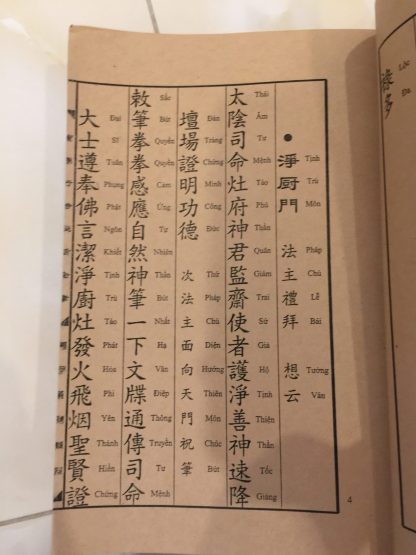 Lộc Đa
多
● 淨厨門 法主禮拜 想云
Tịnh Trù Môn Pháp Chủ Lễ Bái Tưởng Vân
太陰司命灶府神君監齋使者護淨善神速降
Thái Âm Tư Mệnh Táo Phủ Thần Quân Giám Trai Sứ Giả Hộ Tịnh Thiện Thần Tốc Giáng
壇場證明功德 次法主面向天門祝筆
Đàn Tràng Chứng Minh Công Đức Thứ Pháp Chủ Diện Hướng Thiên Môn Chúc Bút
敕筆拳拳感應自然神筆一下文牒通傳司命
Sắc Bút Quyền Quyền Cảm Ứng Tự Nhiên Thần Bút Nhất Hạ Văn Điệp Thông Truyền Tư Mệnh
大士遵奉佛言潔淨廚灶發火飛烟聖賢證
Đại Sĩ Tuân Phụng Phật Ngôn Khiết Tịnh Trù Táo Phát Hỏa Phi Yên Thánh Hiền Chứng
4